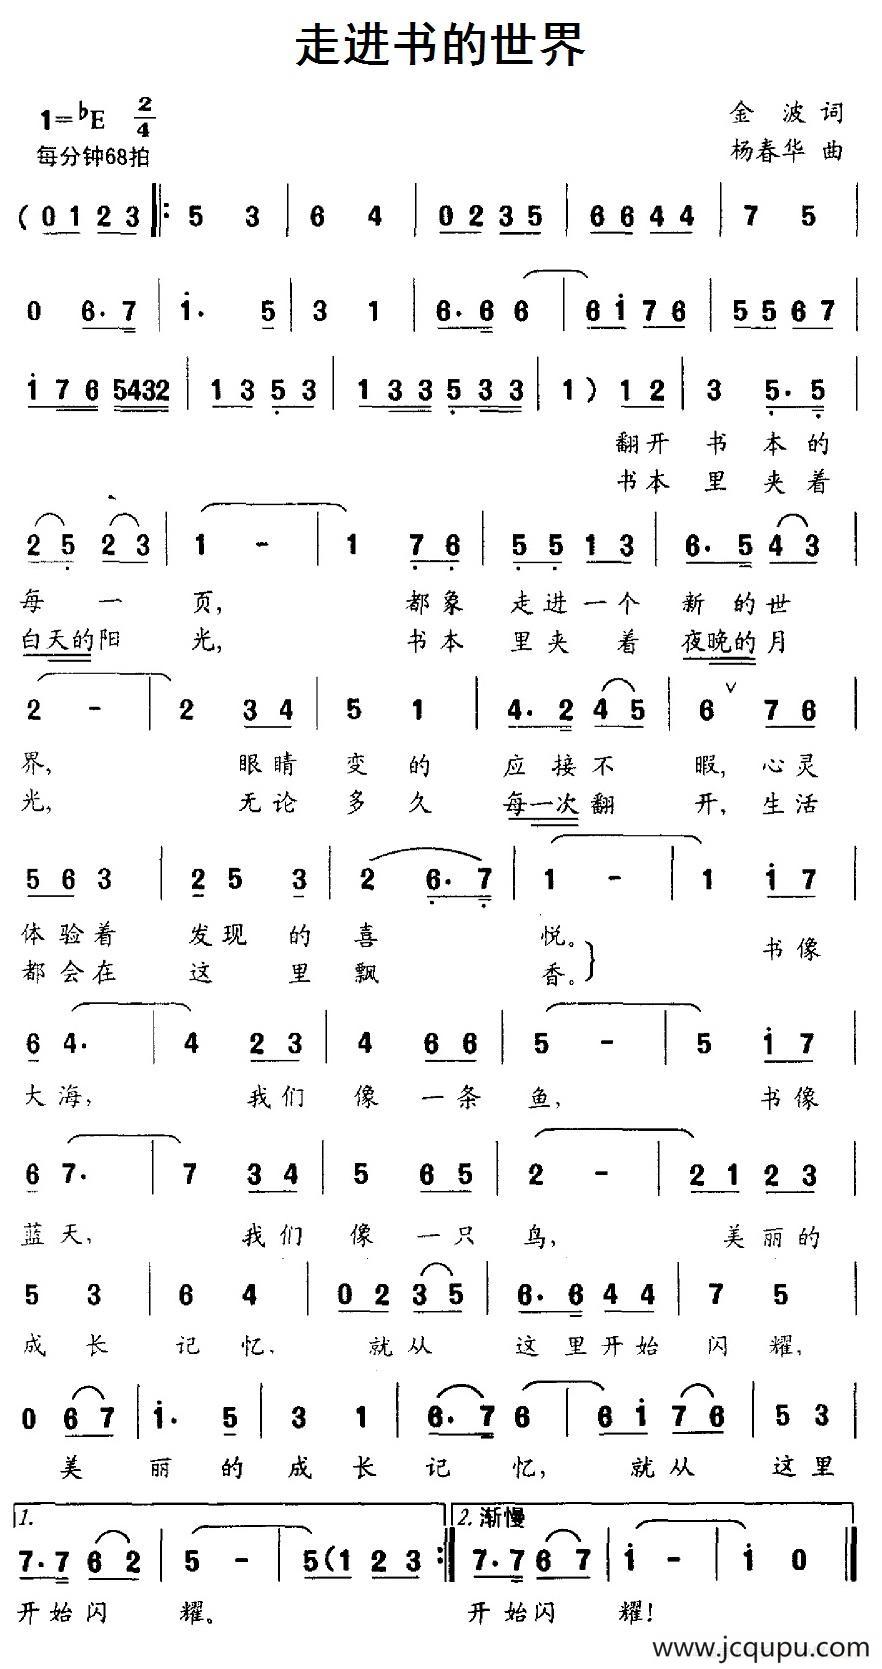 走进书的世界
1=♭E 2/4
金 波 词
每分钟68拍
杨春华 曲
(0 1 2 3 |: 5 3 | 6 4 | 0 2 3 5 | 6 6 4 4 | 7 5 |
0 6. 7 | i. 5 | 3 1 | 6. 6 6 | 6 i 7 6 | 5 5 6 7 |
i 7 6 5432 | 1 3 5 3 | 1 3 3 5 3 3 | 1 ) 1 2 | 3 5. 5 |
翻开 书 本的
书本 里 夹着
2 5 2 3 | 1 - | 1 7 6 | 5 5 1 3 | 6. 5 4 3 |
每 一 页, 都象 走进一个 新的世
白天的阳 光, 书本 里夹 着 夜晚的月
2 - | 2 3 4 | 5 1 | 4. 2 4 5 | 6 ∨ 7 6 |
界, 眼睛 变 的 应接不 暇, 心灵
光, 无论 多 久 每一次翻 开, 生活
5 6 3 | 2 5 3 | 2 6. 7 | 1 - | 1 i 7 |
体验着 发现 的 喜 悦。 书像
都会在 这 里 飘 香。
6 4. | 4 2 3 | 4 6 6 | 5 - | 5 i 7 |
大海, 我们 像 一条 鱼, 书像
6 7. | 7 3 4 | 5 6 5 | 2 - | 2 1 2 3 |
蓝天, 我们 像 一只 鸟, 美丽的
5 3 | 6 4 | 0 2 3 5 | 6. 6 4 4 | 7 5 |
成 长 记 忆, 就从 这里开始 闪 耀,
0 6 7 | i. 5 | 3 1 | 6. 7 6 | 6 i 7 6 | 5 3
美 丽 的 成 长 记 忆, 就从 这里
1. 2. 渐慢
7. 7 6 2 | 5 - | 5 (1 2 3 :| 7. 7 6 7 | i - | i 0 ‖
开始闪 耀。 开始闪 耀!
www.jcqupu.com